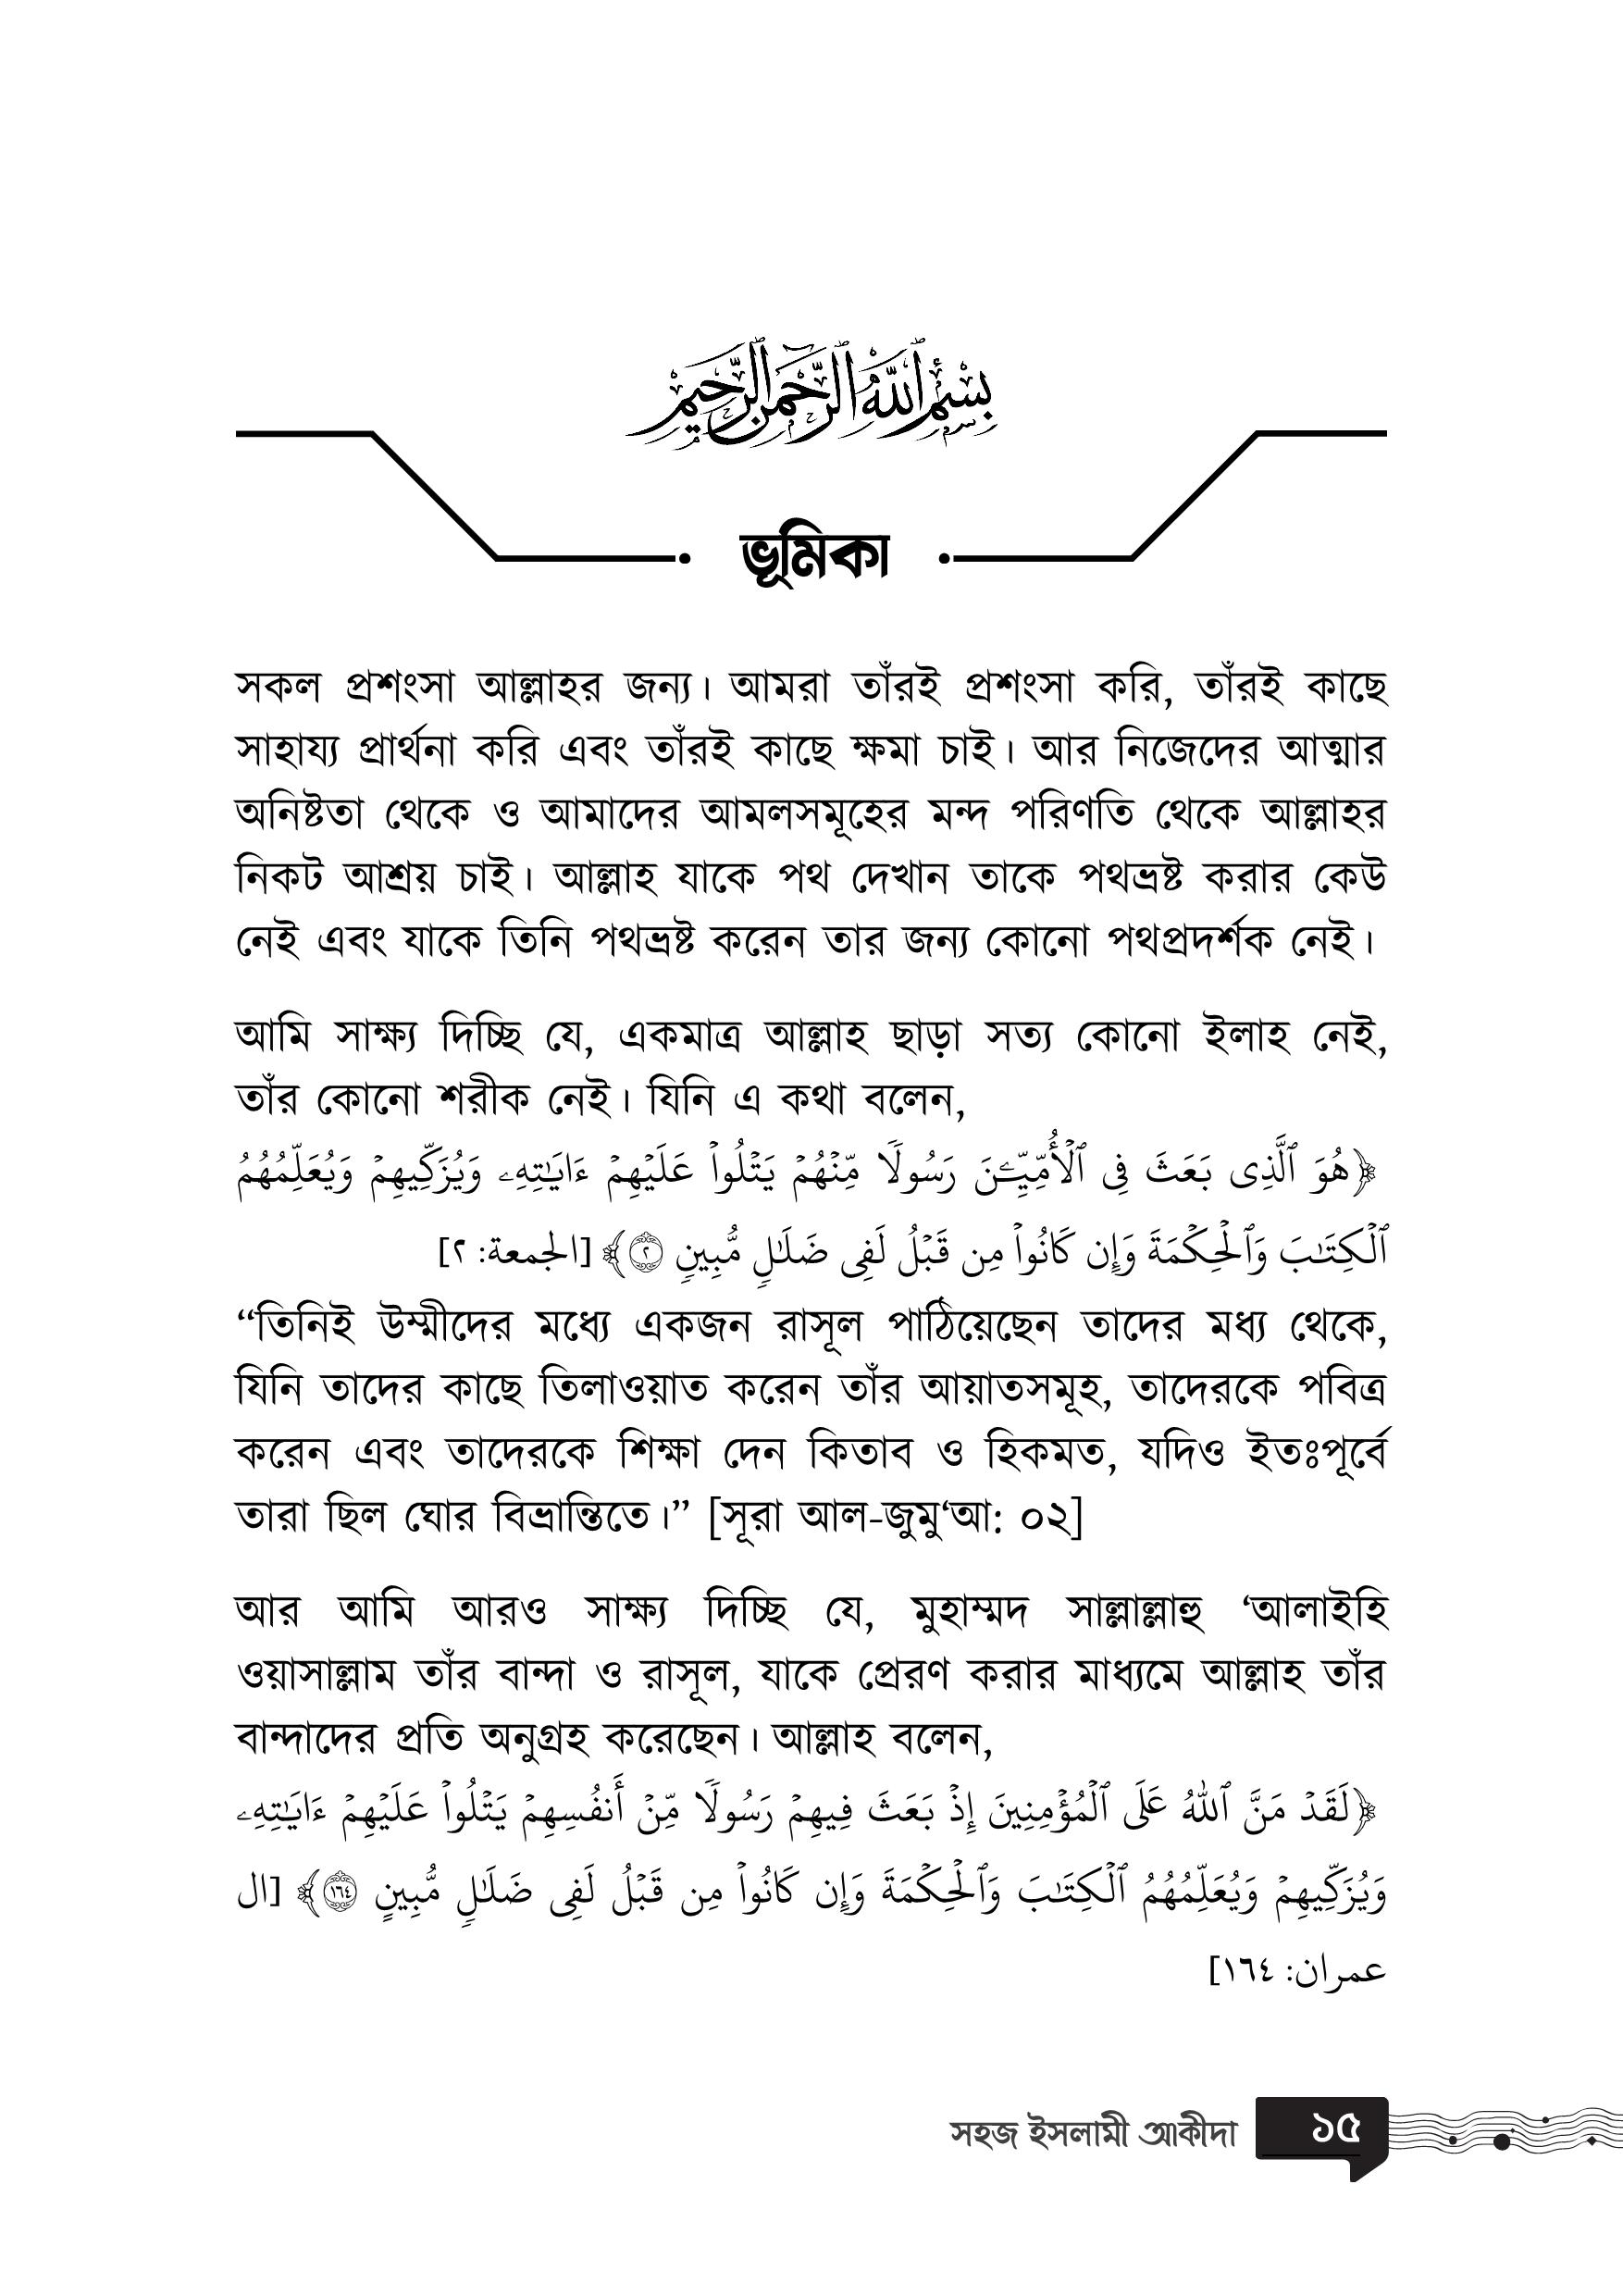 بِسْمِ ٱللَّهِ ٱلرَّحْمَٰنِ ٱلرَّحِيمِ
ভূমিকা
সকল প্রশংসা আল্লাহর জন্য। আমরা তাঁরই প্রশংসা করি, তাঁরই কাছে
সাহায্য প্রার্থনা করি এবং তাঁরই কাছে ক্ষমা চাই। আর নিজেদের আত্মার
অনিষ্টতা থেকে ও আমাদের আমলসমূহের মন্দ পরিণতি থেকে আল্লাহর
নিকট আশ্রয় চাই। আল্লাহ যাকে পথ দেখান তাকে পথভ্রষ্ট করার কেউ
নেই এবং যাকে তিনি পথভ্রষ্ট করেন তার জন্য কোনো পথপ্রদর্শক নেই।
আমি সাক্ষ্য দিচ্ছি যে, একমাত্র আল্লাহ ছাড়া সত্য কোনো ইলাহ নেই,
তাঁর কোনো শরীক নেই। যিনি এ কথা বলেন,
﴿هُوَ ٱلَّذِي بَعَثَ فِي ٱلۡأُمِّيِّـۧنَ رَسُولٗا مِّنۡهُمۡ يَتۡلُواْ عَلَيۡهِمۡ ءَايَٰتِهِۦ وَيُزَكِّيهِمۡ وَيُعَلِّمُهُمُ
ٱلۡكِتَٰبَ وَٱلۡحِكۡمَةَ وَإِن كَانُواْ مِن قَبۡلُ لَفِي ضَلَٰلٖ مُّبِينٖ ٢﴾ [الجمعة: ٢]
“তিনিই উম্মীদের মধ্যে একজন রাসূল পাঠিয়েছেন তাদের মধ্য থেকে,
যিনি তাদের কাছে তিলাওয়াত করেন তাঁর আয়াতসমূহ, তাদেরকে পবিত্র
করেন এবং তাদেরকে শিক্ষা দেন কিতাব ও হিকমত, যদিও ইতঃপূর্বে
তারা ছিল ঘোর বিভ্রান্তিতে।” [সূরা আল-জুমু‘আ: ০২]
আর আমি আরও সাক্ষ্য দিচ্ছি যে, মুহাম্মদ সাল্লাল্লাহু ‘আলাইহি
ওয়াসাল্লাম তাঁর বান্দা ও রাসূল, যাকে প্রেরণ করার মাধ্যমে আল্লাহ তাঁর
বান্দাদের প্রতি অনুগ্রহ করেছেন। আল্লাহ বলেন,
﴿لَقَدۡ مَنَّ ٱللَّهُ عَلَى ٱلۡمُؤۡمِنِينَ إِذۡ بَعَثَ فِيهِمۡ رَسُولٗا مِّنۡ أَنفُسِهِمۡ يَتۡلُواْ عَلَيۡهِمۡ ءَايَٰتِهِۦ
وَيُزَكِّيهِمۡ وَيُعَلِّمُهُمُ ٱلۡكِتَٰبَ وَٱلۡحِكۡمَةَ وَإِن كَانُواْ مِن قَبۡلُ لَفِي ضَلَٰلٖ مُّبِينٍ ١٦٤﴾ [ال
عمران: ١٦٤]
সহজ ইসলামী আকীদা ১৫